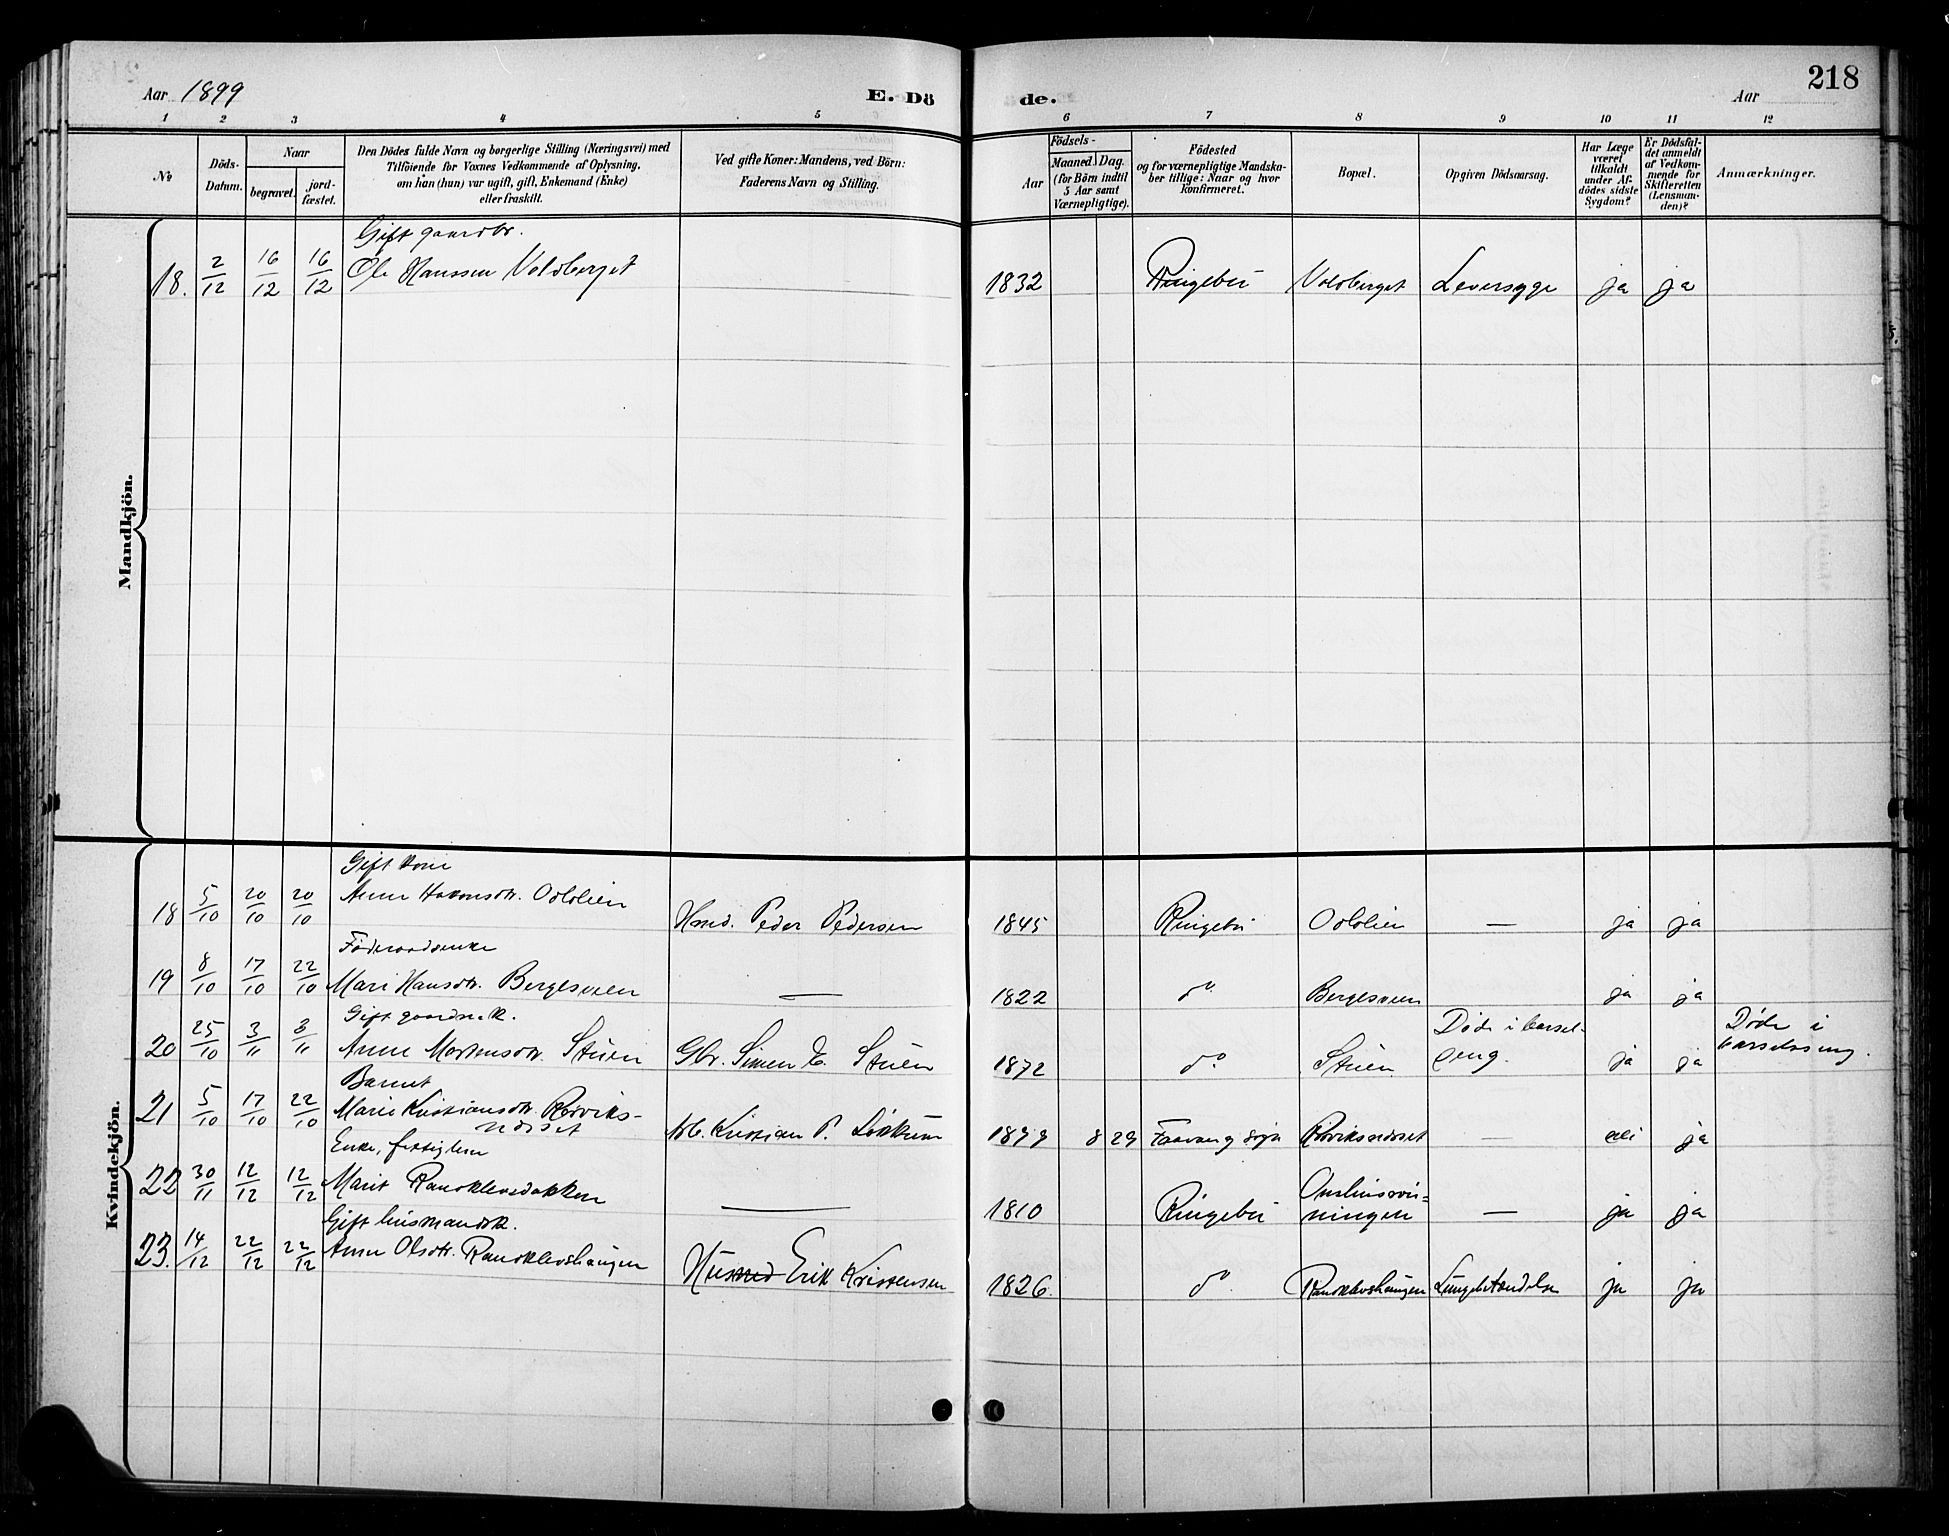 218
Aar 1899
E. Dö
de.
Aar
1 2 3 4 5 6 7 8 9 10 11 12
№
Döds-
Datum.
Naar
begravet.
jord-
fæstet.
Den Dödes fulde Navn og borgerlige Stilling (Næringsvei) med
Tilföiende for Voxnes Vedkommende af Oplysning.
om han (hun) var ugift, gift, Enkemand (Enke)
eller fraskilt.
Ved gifte Koner: Mandens, ved Börn:
Faderens Navn og Stilling.
Födsels-
Aar
Maaned. Dag.
(for Börn indtil
5 Aar samt
Værnepligtige).
Födested
og for værnepligtige Mandska-
ber tillige: Naar og hvor
Konfirmeret.
Bopæl.
Opgiven Dödsaarsag.
Har Læge
været
tilkaldt
under Af-
dödes sidste
Sygdom?
Er Dödsfal-
det anmeldt
af Vedkom-
mende for
Skifteretten
(Lensman-
den)?
Anmærkninger.
Mandkjön.
Gift gaardbr.
18. 2/12 16/12 16/12 Ole Hanssen Voldberget 1832 Ringebu Voldberget Leversyge ja ja
Kvindekjön.
Gift kone
18 5/10 20/10 20/10 Anne Hakonsdtr. Oddlien Hmd. Peder Pedersen 1845 Ringebu Oddlien — ja ja
Føderaadsenke
19 8/10 17/10 22/10 Mari Hansdtr. Bergesveen — 1822 do Bergesveen ja ja
Gift gaardmk.
20 25/10 3/11 3/11 Anne Mortensdtr. Stuen Gbr. Simen E. Stuen 1872 do. Stuen Døde i barsel-
seng. ja ja Døde i
barselseng.
Barnet
21 5/10 17/10 22/10 Marie Kristiansdtr. Rørviks-
nedset Arb. Kristian P. Løkkum 1899 8 29 Faavang Sogn Rørviksnedset — nei ja
Enke, fattiglem
22 30/11 12/12 12/12 Marit Randklevsbakken — 1810 Ringebu
ningen — ja ja
Gift husmandsk.
23. 14/12 22/12 22/12 Anne Olsdtr. Randklevshaugen Husmd Erik Kristensen 1826. do. Randklevshaugen Lungebetændelse ja ja